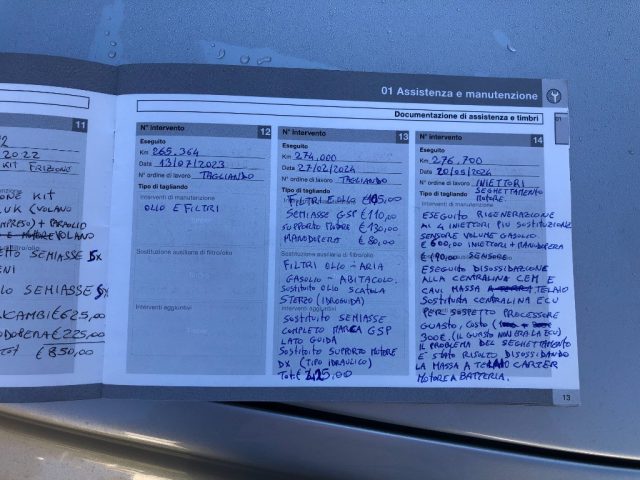 01 Assistenza e manutenzione
01
Documentazione di assistenza e timbri
11
2022
KIT FRIZIONE
ONE KIT
UK (VOLANO
MPRESO) + PARAOLIO
E MOTORE VOLANO
SEMIASSE SX
ENI
LO SEMIASSE SX
ICAMBI €625,00
ODOPERA €225,00
TOT €850,00
N° intervento 12
Eseguito
Km 265.364
Data 13/07/2023
N° ordine di lavoro TAGLIANDO
Tipo di tagliando
Interventi di manutenzione
OLIO E FILTRI
Sostituzione ausiliaria di filtro/olio
Interventi aggiuntivi
N° intervento 13
Eseguito
Km 274.000
Data 27/02/2024
N° ordine di lavoro TAGLIANDO
Tipo di tagliando
Interventi di manutenzione
FILTRI E OLIO €105,00
SEMIASSE GSP €110,00
SUPPORTO MOTORE €130,00
MANODOPERA € 80,00
Sostituzione ausiliaria di filtro/olio
FILTRI OLIO - ARIA
GASOLIO - ABITACOLO.
SOSTITUITO OLIO SCATOLA
STERZO (IDROGUIDA)
Interventi aggiuntivi
SOSTITUITO SEMIASSE
COMPLETO MARCA GSP
LATO GUIDA
SOSTITUITO SUPPORTO MOTORE
DX (TIPO IDRAULICO)
TOT: € 425,00
N° intervento 14
Eseguito
Km 276.700
Data 20/05/2024
N° ordine di lavoro INIETTORI
Tipo di tagliando SEGHETTAMENTO
Interventi di manutenzione MOTORE.
ESEGUITO RIGENERAZIONE
AI 4 INIETTORI PIU SOSTITUZIONE
SENSORE VOLUME GASOLIO.
€ 600,00 INIETTORI + MANODOPERA
€ 190,00 SENSORE
ESEGUITO DISOSSIDAZIONE
ALLA CENTRALINA CEM E
CAVI MASSA A TERRA TELAIO
SOSTITUITA CENTRALINA ECU
PER SOSPETTO PROCESSORE
GUASTO, COSTO
300€. (IL GUASTO NON ERA LA ECU)
IL PROBLEMA DEL SEGHETTAMENTO
E STATO RISOLTO DISOSSIDANDO
LA MASSA A TELAIO CARTER
MOTORE A BATTERIA.
13